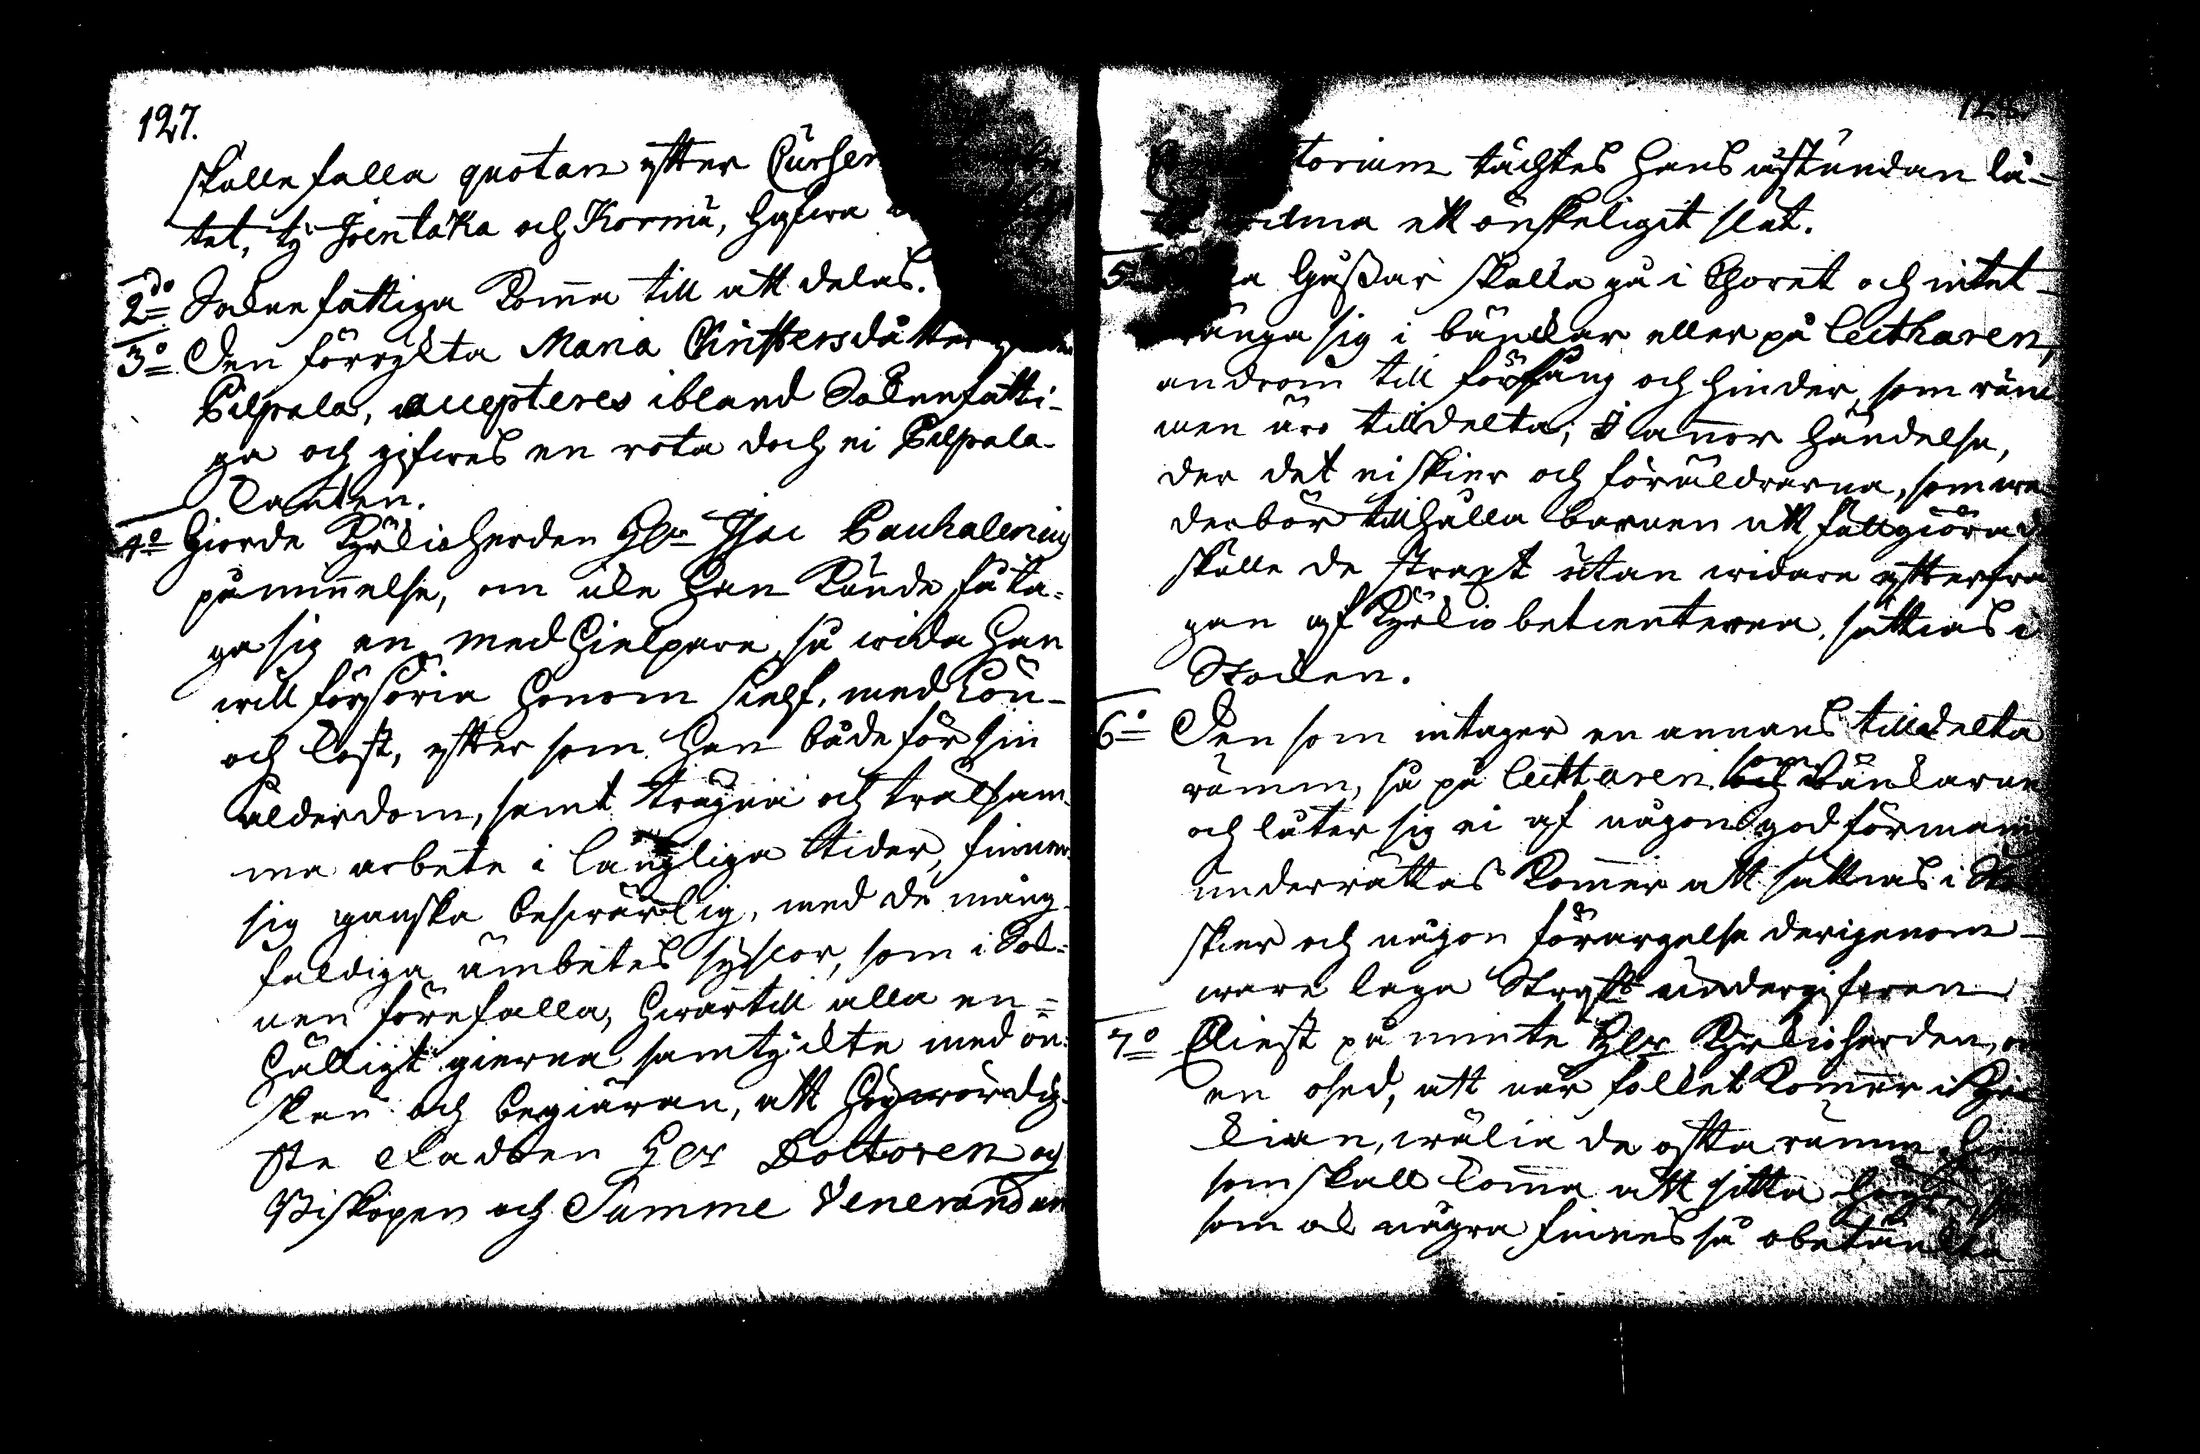 127.
skulle falla quotan effter
tet, ty Joentaka och Kormu, hafwa
2do Sokne fattiga komma till att delas.
3o Den förryckta Maria Christersdåtter
Pilpala, accepteres ibland Soknefatti-
ga och gifwes en rota doch ei Pilpala
Tackten.
4o Giorde Kyrkioherden Hr Isac Pauhalenius
påminnelse, om icke han kunde få ta-
ga sig en medhielpare, så wida han
will försöria honom sielf, med Lön
och kost, effter som han både för sin
ålderdom, samt trägna och trälsam-
ma arbete i långliga tider, finner
sig ganska beswärlig, med de mång-
faldiga ämbetes syslor, som i Sok-
nen förefalla, hwartill alla en-
hälligt gierna samtyckte med ön-
skan och begiäran, att högwördig-
ste Fadren Her Doctoren och
Biskopen och Summe Venerandum
torium täcktes hans åstundan lä-
ett önskeligit slut.
5 Gossar skolla gå i Choret och intet
tränga sig i bänckar eller på lectharen,
androm till förfång och hinder, som rum-
men äro tilldelta; I annor händelse,
der det ei skier och föräldrarna, som
derbör tillhålla barnen att fullgiöra
skolle de straxt utan widare effterfrå
gan af Kyrkiobetienterna, sättias i
Stocken.
6o Den som intager en annans tilldelta
rumm, så på lectharen som bänckarne
och låter sig ei af någons god förman
underrättas kommer att sättias i
skier och någon förargelse derigenom
ware laga Straff undergifwen
7o Eliest påminte Her Kyrkioherden, om
en osed, att när folket kommer i Kyr
kian, wälia de offta rumm,
som skall komma att sitta högre,
som ock några finnes så obetänckta